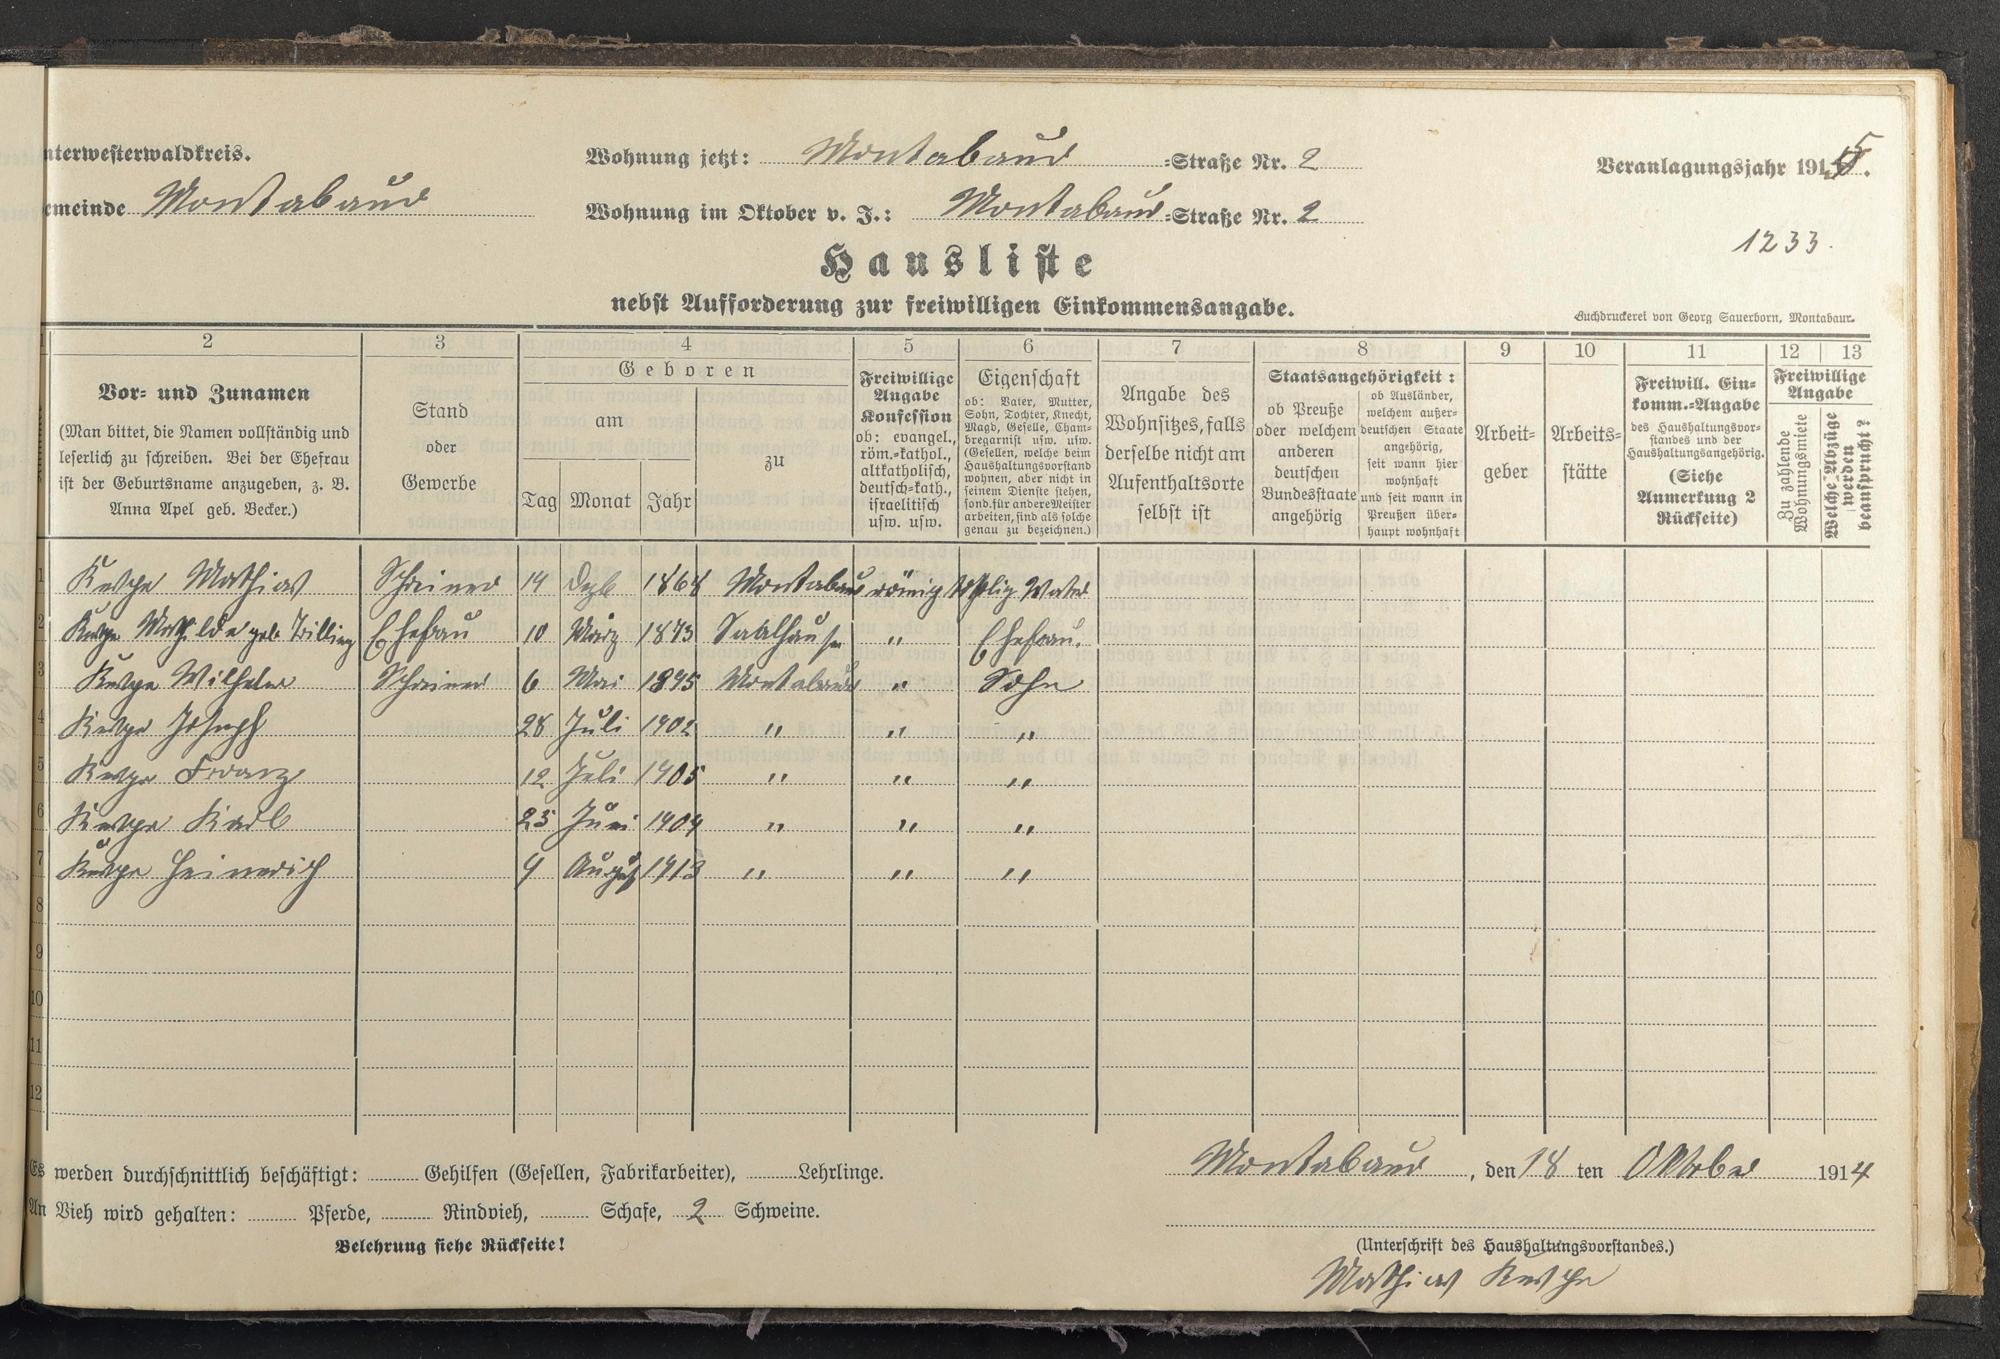 nterwesterwaldkreis.
emeinde Montabaur
Wohnung jetzt: Montabaur =Straße Nr. 2
Wohnung im Oktober v. J.: Montabaur =Straße Nr. 2
Veranlagungsjahr 1915.
1233.
Hausliste
nebst Aufforderung zur freiwilligen Einkommensangabe.
Buchdruckerei von Georg Sauerborn, Montabaur.
2 3 4 5 6 7 8 9 10 11 12 13
Vor= und Zunamen
(Man bittet, die Namen vollständig und
leserlich zu schreiben. Bei der Ehefrau
ist der Geburtsname anzugeben, z. B.
Anna Apel geb. Becker.)
Stand
oder
Gewerbe
Geboren
am
Tag Monat Jahr
zu
Freiwillige
Angabe
Konfession
ob: evangel.,
röm.=kathol.,
altkatholisch,
deutsch=kath.,
israelitisch
usw. usw.
Eigenschaft
ob: Vater, Mutter,
Sohn, Tochter, Knecht,
Magd, Geselle, Cham=
bregarnist usw. usw.
(Gesellen, welche beim
Haushaltungsvorstand
wohnen, aber nicht in
seinem Dienste stehen,
sond. für andere Meister
arbeiten, sind als solche
genau zu bezeichnen.)
Angabe des
Wohnsitzes, falls
derselbe nicht am
Aufenthaltsorte
selbst ist
Staatsangehörigkeit:
ob Preuße
oder welchem
anderen
deutschen
Bundesstaate
angehörig
ob Ausländer,
welchem außer=
deutschen Staate
angehörig,
seit wann hier
wohnhaft
und seit wann in
Preußen über=
haupt wohnhaft
Arbeit=
geber
Arbeits=
stätte
Freiwill. Ein=
komm.=Angabe
des Haushaltungsvor=
standes und der
Haushaltungsangehörig.
(Siehe
Anmerkung 2
Rückseite)
Freiwillige
Angabe
Zu zahlende
Wohnungsmiete
Welche Abzüge
werden
beansprucht?
1 Mathias Schreiner 14 Dezb 1868 Montabaur Vater
2 Mathilde geb. Trilling Ehefrau 10 März 1873 Saalhausen " Ehefrau.
3 Wilhelm Schreiner 6 Mai 1895 Montabaur " Sohn
4 Joseph 28 Juli 1902 " " "
5 Franz 12 Juli 1905 " " "
6 Karl 25 Juni 1909 " " "
7 Heinrich 9 August 1913 " " "
8
9
10
11
12
Es werden durchschnittlich beschäftigt: Gehilfen (Gesellen, Fabrikarbeiter), Lehrlinge.
An Vieh wird gehalten: Pferde, Rindvieh, Schafe, 2 Schweine.
Belehrung siehe Rückseite!
Montabaur, den 18 ten Oktober 1914
(Unterschrift des Haushaltungsvorstandes.)
Mathias